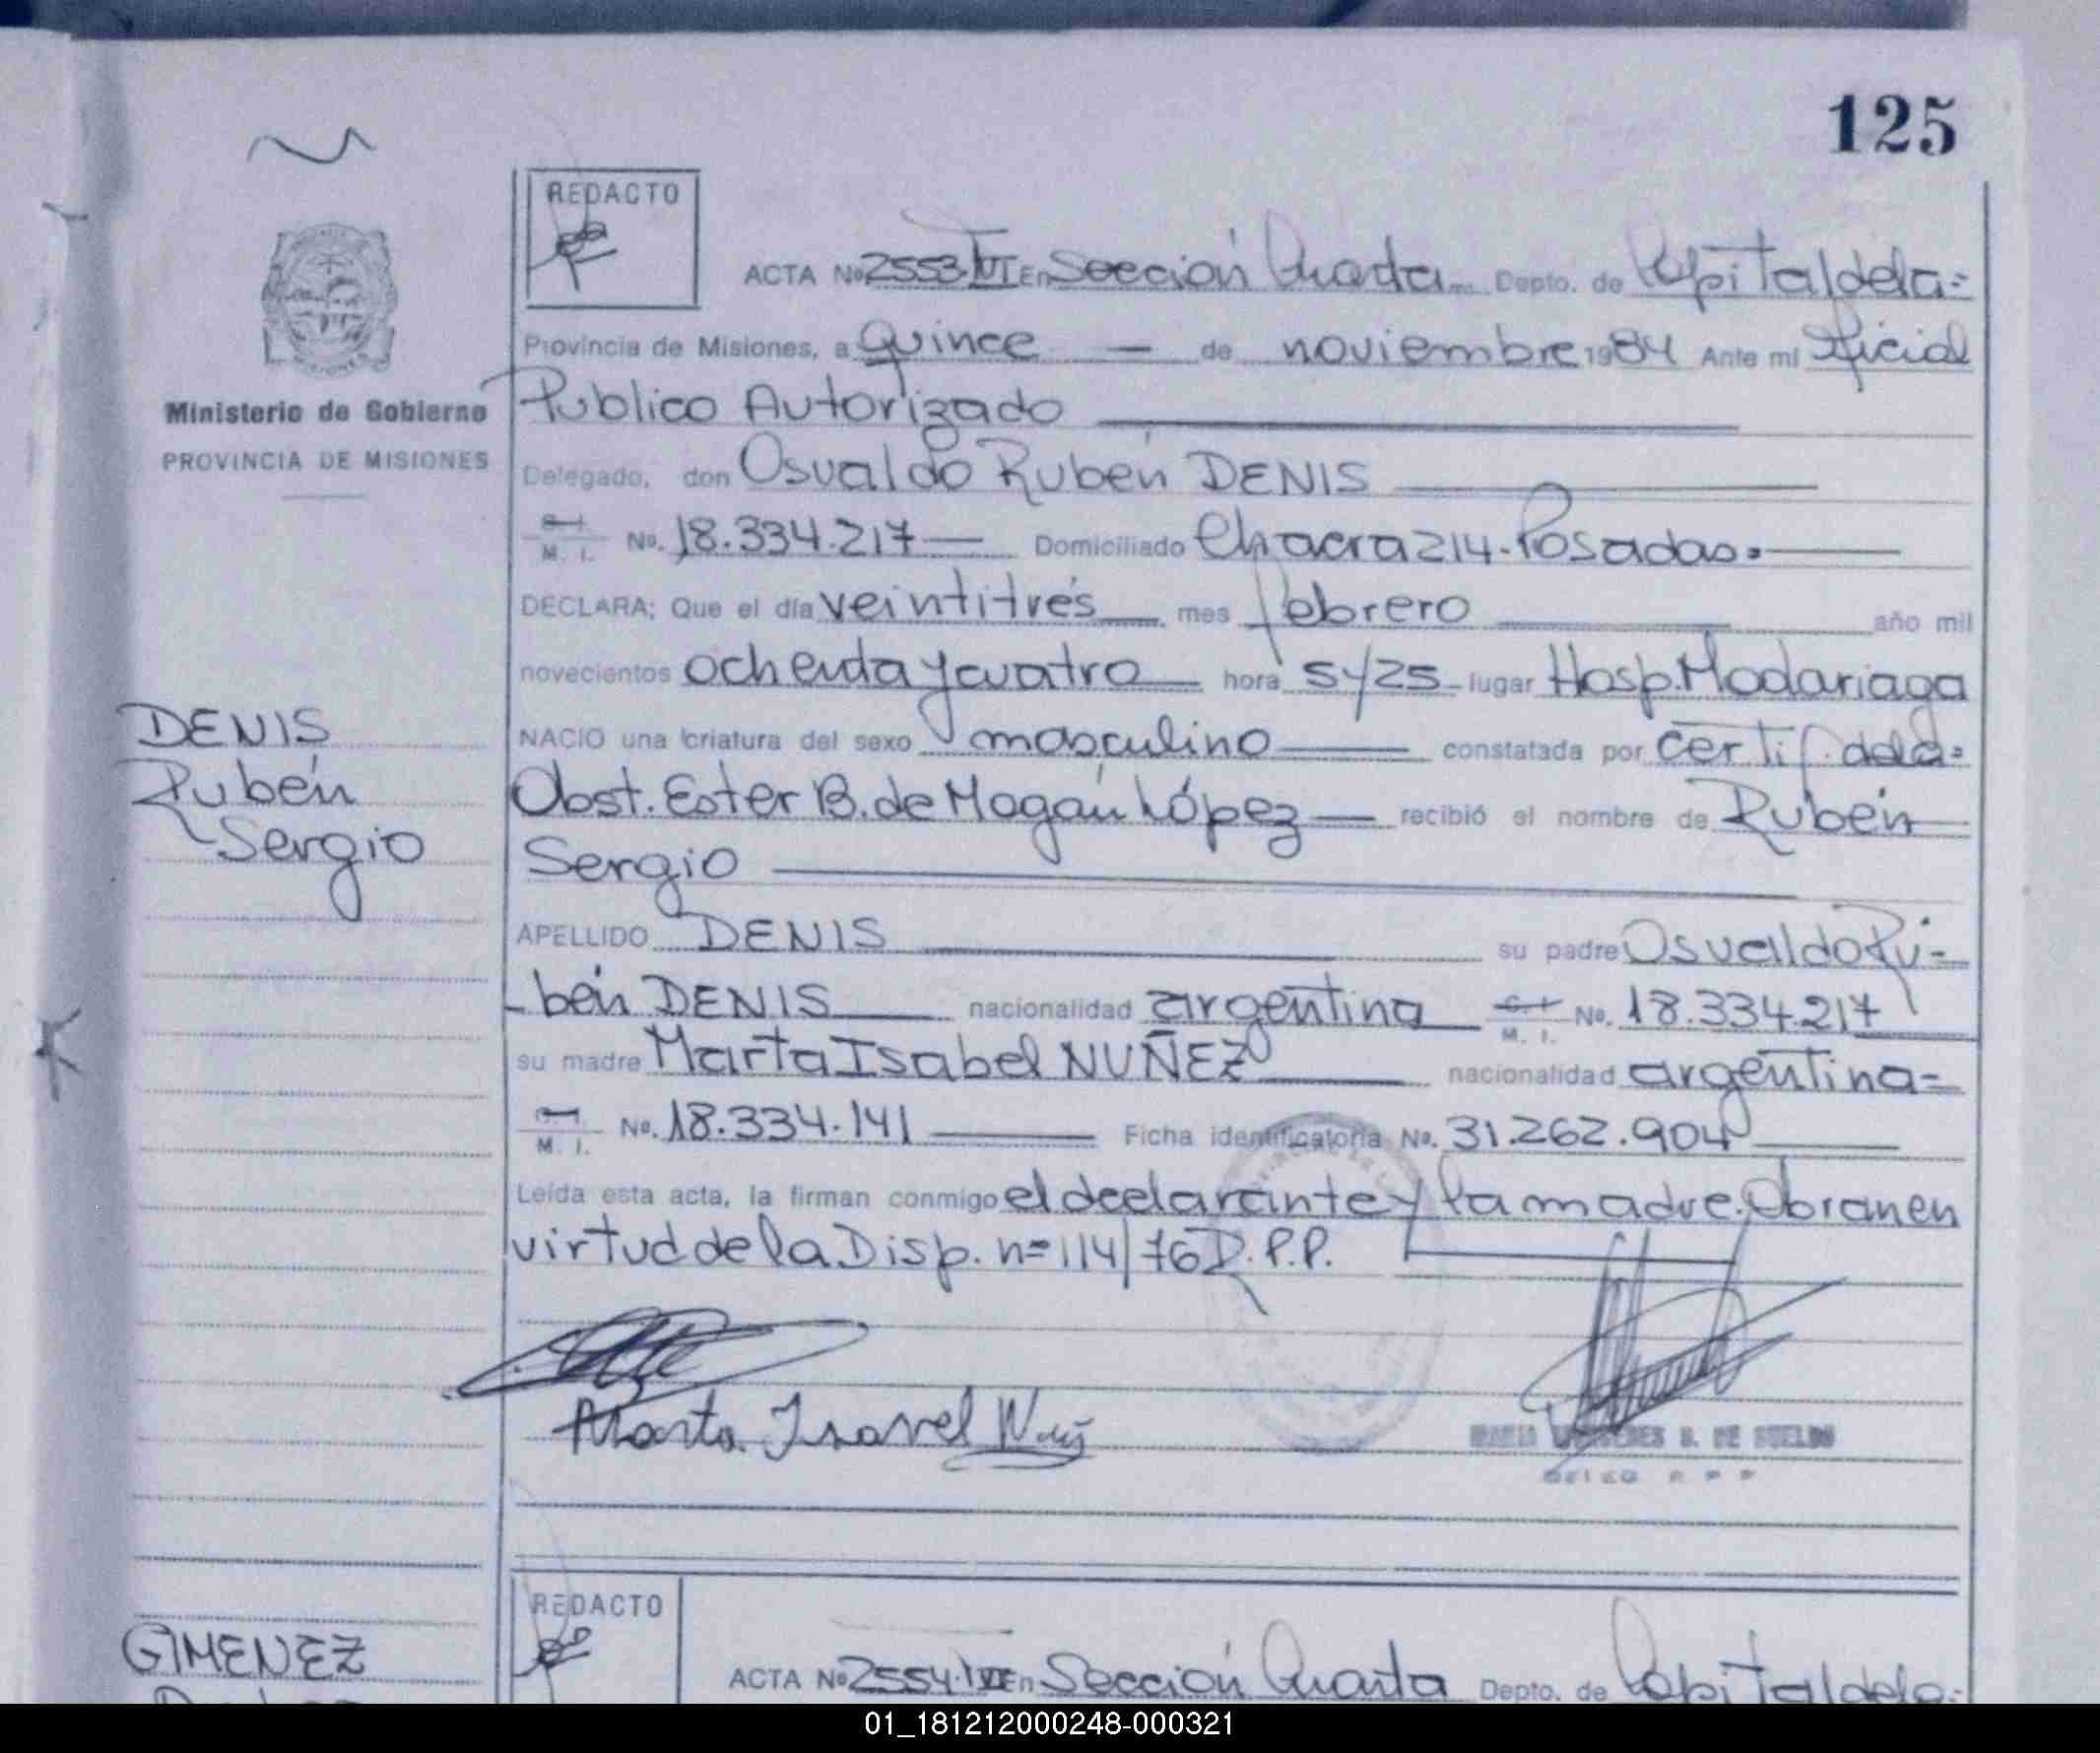 125
REDACTO
ACTA Nº 2553. En Sección Cuarta Depto. de Capital de la-
Provincia de Misiones, a quince — de noviembre 1984 Ante mi Oficial
Publico Autorizado
Ministerio de Gobierno
PROVINCIA DE MISIONES
Delegado, don Osvaldo Rubén DENIS
M. I. No. 18.334.217 — Domiciliado Chacra 214. Posadas.
DECLARA; Que el día veintitrés mes febrero año mil
novecientos ochenta y cuatro hora 5 y 25 lugar Hosp. Madariaga
DENIS
Rubén
Sergio
NACIO una criatura del sexo masculino constatada por certif. de la-
Obst. Ester B. de Magán López recibió el nombre de Rubén
Sergio
APELLIDO DENIS su padre Osvaldo Ru-
-bén DENIS nacionalidad argentina C. I. M. I. No. 18.334.217
su madre Marta Isabel NUÑEZ nacionalidad argentina-
M. I. No. 18.334.141 Ficha identificatoria No. 31.262.904
Leída esta acta, la firman conmigo el declarante y la madre. Obran en
virtud de la Disp. nº 114/76 D. P.P.
Marta Isavel
B. DE SUELDO
GIMENEZ
REDACTO
ACTA Nº 2554. En Sección Cuarta Depto. de Capital de la-
01_181212000248-000321